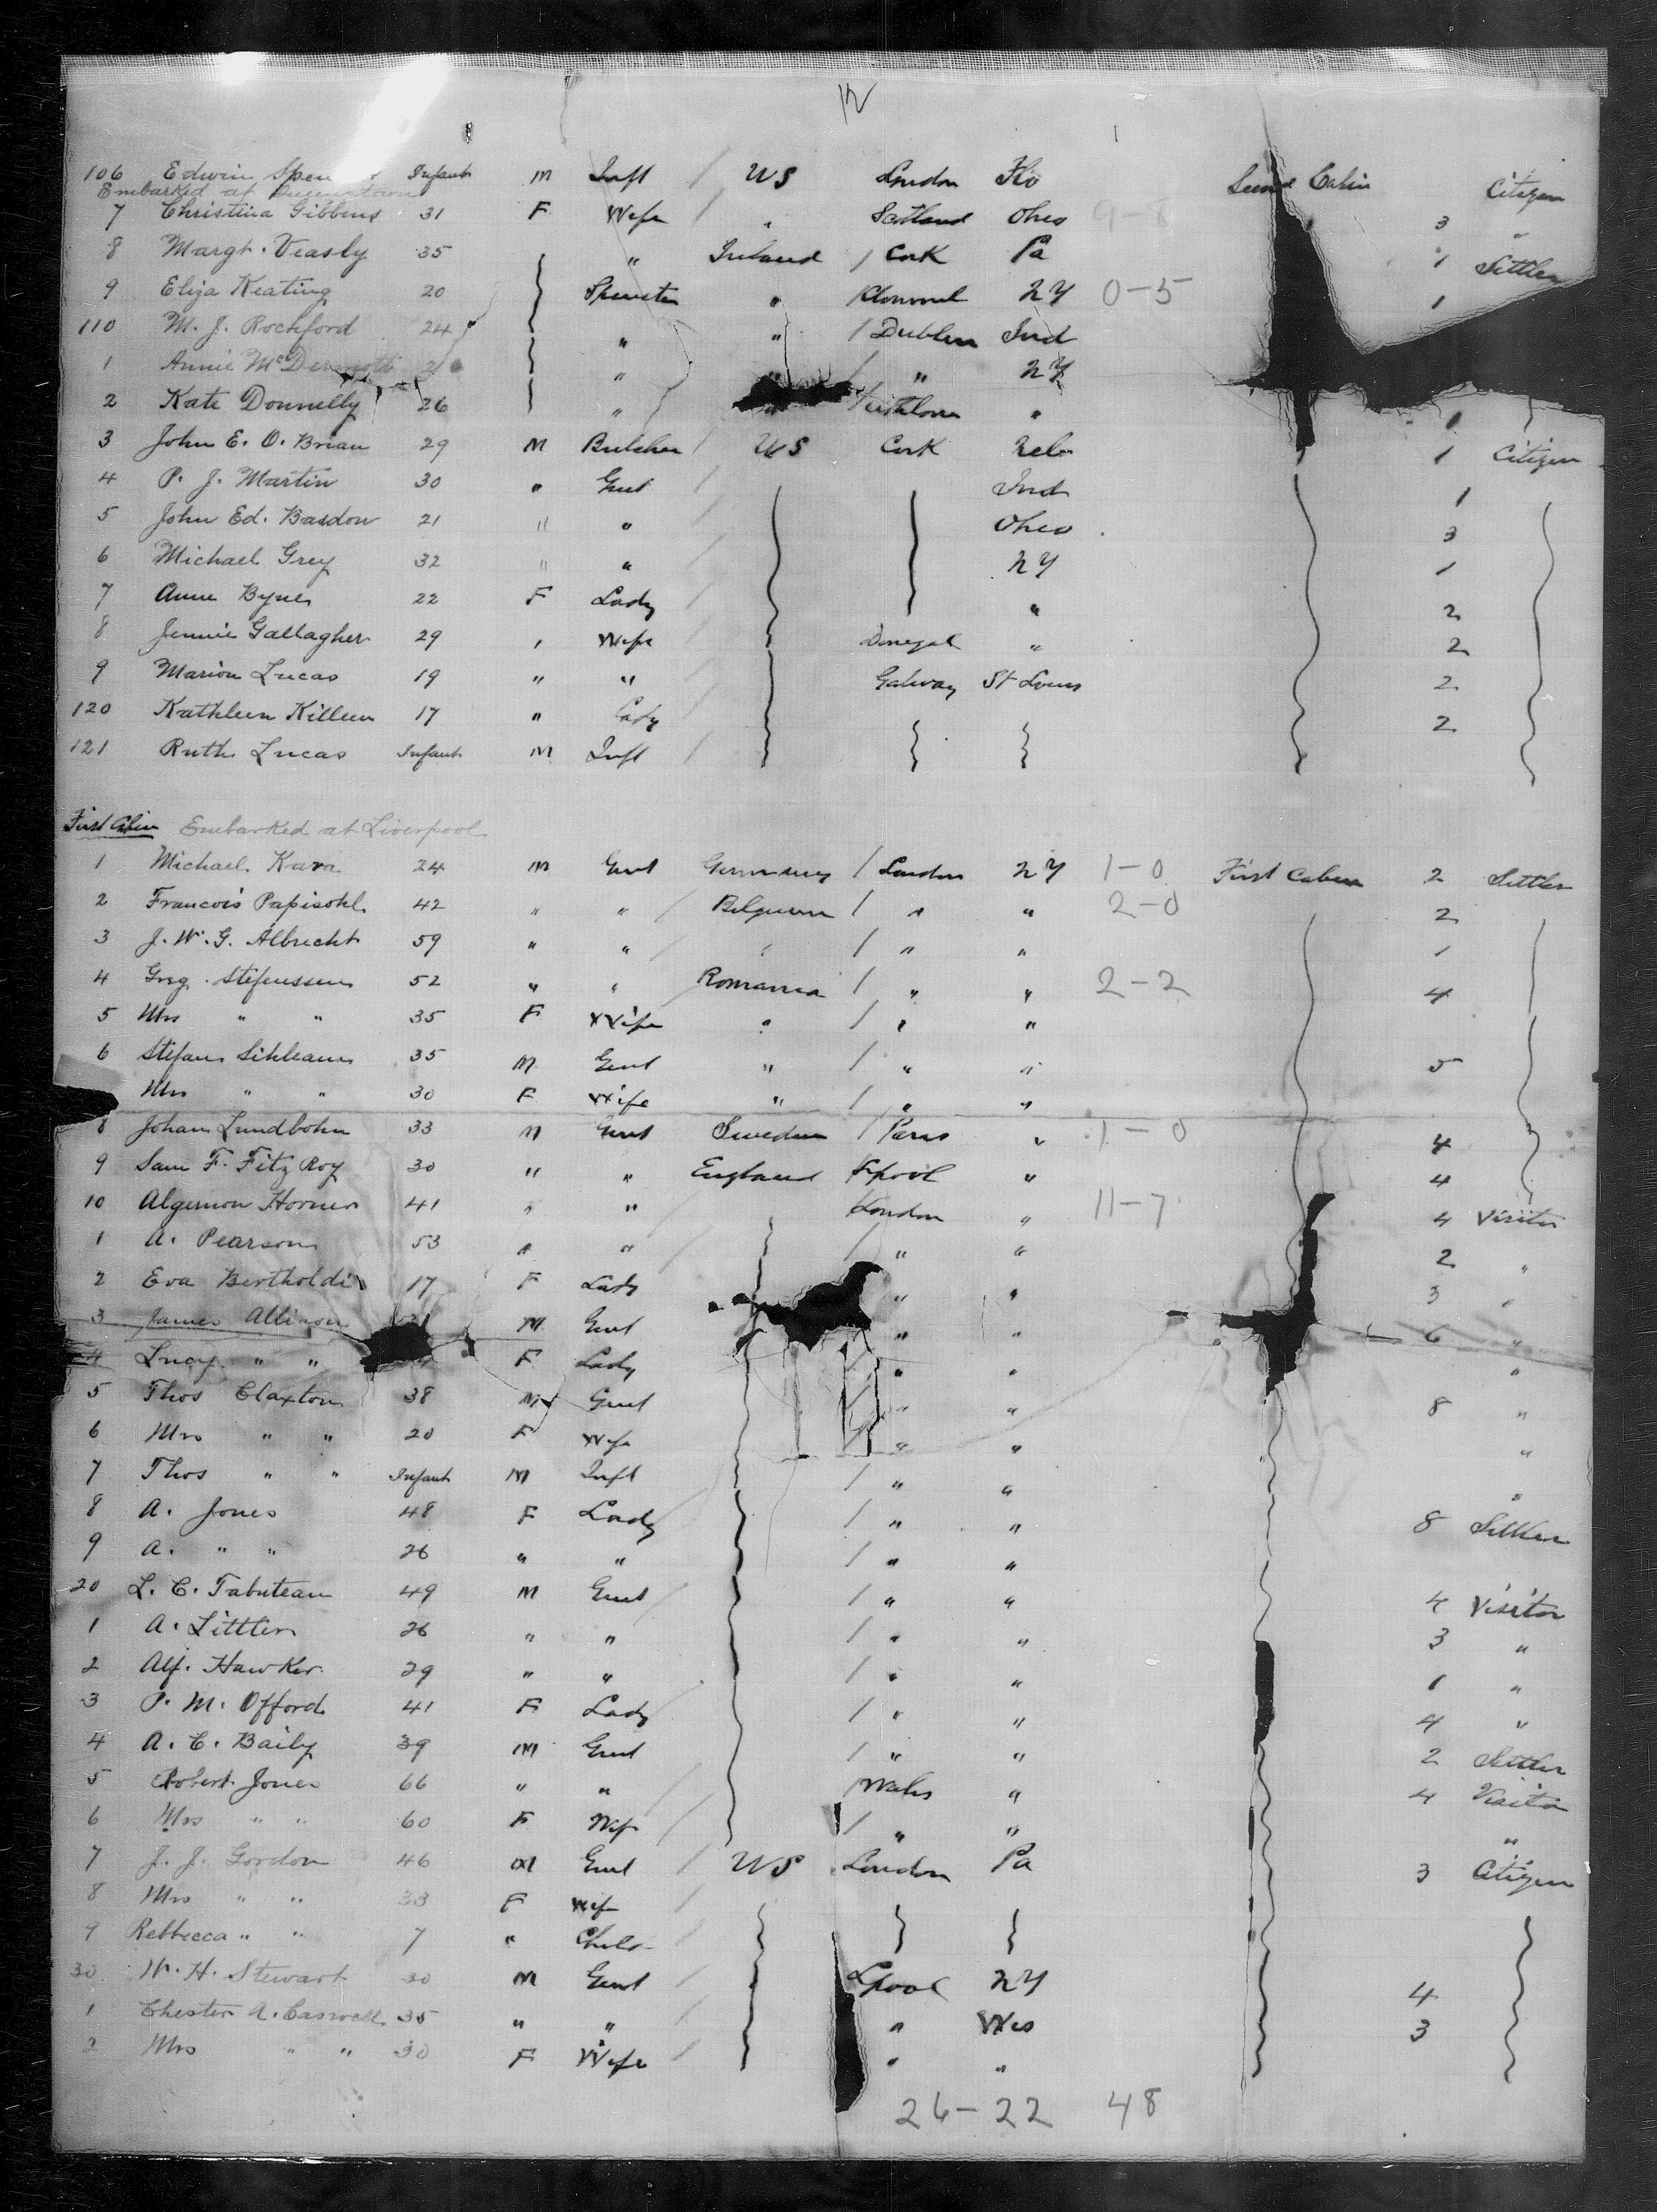 12
106 Edwin Infant M Inft / US London Second Cabin Citizen
Embarked at Queenstown
7 Christina Gibbens 31 F Wife / " Scotland Ohio 9-8 3 "
8 Margt. Veasly 35 " Ireland / Cork Pa 1 Settler
9 Eliza Keating 20 Spinster " / Clonmel NY 0-5 1
110 M. J. Rochford 24 " " / Dublin Ind
1 Annie McDermott " / " NY
2 Kate Donnelly 26 " " / " 1
3 John E. O. Brian 29 M Butcher / US Cork Neb 1 Citizen
4 P. J. Martin 30 " Gent / Ind 1
5 John Ed. Basdon 21 " " / Ohio 3
6 Michael Grey 32 " " / NY 1
7 Anne Bynes 22 F Lady / " 2
8 Jennie Gallagher 29 " Wife / Donegal " 2
9 Marion Lucas 19 " " / Galway St Louis 2
120 Kathleen Killeen 17 " Lady / 2
121 Ruth Lucas Infant M Inft /
First Cabin Embarked at Liverpool
1 Michael Kara 24 M Gent Germany / London NY 1-0 First Cabin 2 Settler
2 Francois 42 " " / Belgium / " " 2-0 2
3 J. W. G. Albrecht 59 " " / " / " " 1
4 Greg. Stefenssen 52 " " Romania / " " 2-2 4
5 Mrs " " 35 F Wife " / " "
6 Stefan 35 M Gent " / " " 5
Mrs " " 30 F Wife " / " "
8 Johan Lundbohm 33 M Gent Sweden / Paris " 1-0 4
9 Sam F. Fitz Roy 30 " " England / Lpool " 4
10 Algernon Horner 41 " " / London " 11-7 4 Visitor
1 A. Pearson 53 " " / / " " 2 "
2 Eva Bertholdi 17 F Lady " " 3 "
3 James Allison M Gent " " 6 "
4 Lucy " " F Lady / " " "
5 Thos Claxton 38 M Gent / " " 8 "
6 Mrs " " 20 F Wife / " " "
7 Thos " " Infant M Inft / " " "
8 A. Jones 48 F Lady / / " " 8 Settler
9 A. " " 26 " " / " "
20 L. C. Tabuteau 49 M Gent / / " " 4 Visitor
1 A. Littler 26 " " / " " 3 "
2 Alf. Hawker 29 " " / " " 1 "
3 P. M. Offord 41 F Lady / / " " 4 "
4 A. C. Baily 39 M Gent / " " 2 Settler
5 Robert Jones 66 " " / / Wales " 4 Visitor
6 Mrs " " 60 F Wife / / " " "
7 J. J. Gordon 46 M Gent / US London Pa 3 Citizen
8 Mrs " " 33 F Wife /
9 Rebbecca " " 7 " Child
30 W. H. Stewart 30 M Gent / Lpool NY 4
1 Chester A. Caswell 35 " " / " Wis 3
2 Mrs " " 30 F Wife / " "
26-22 48